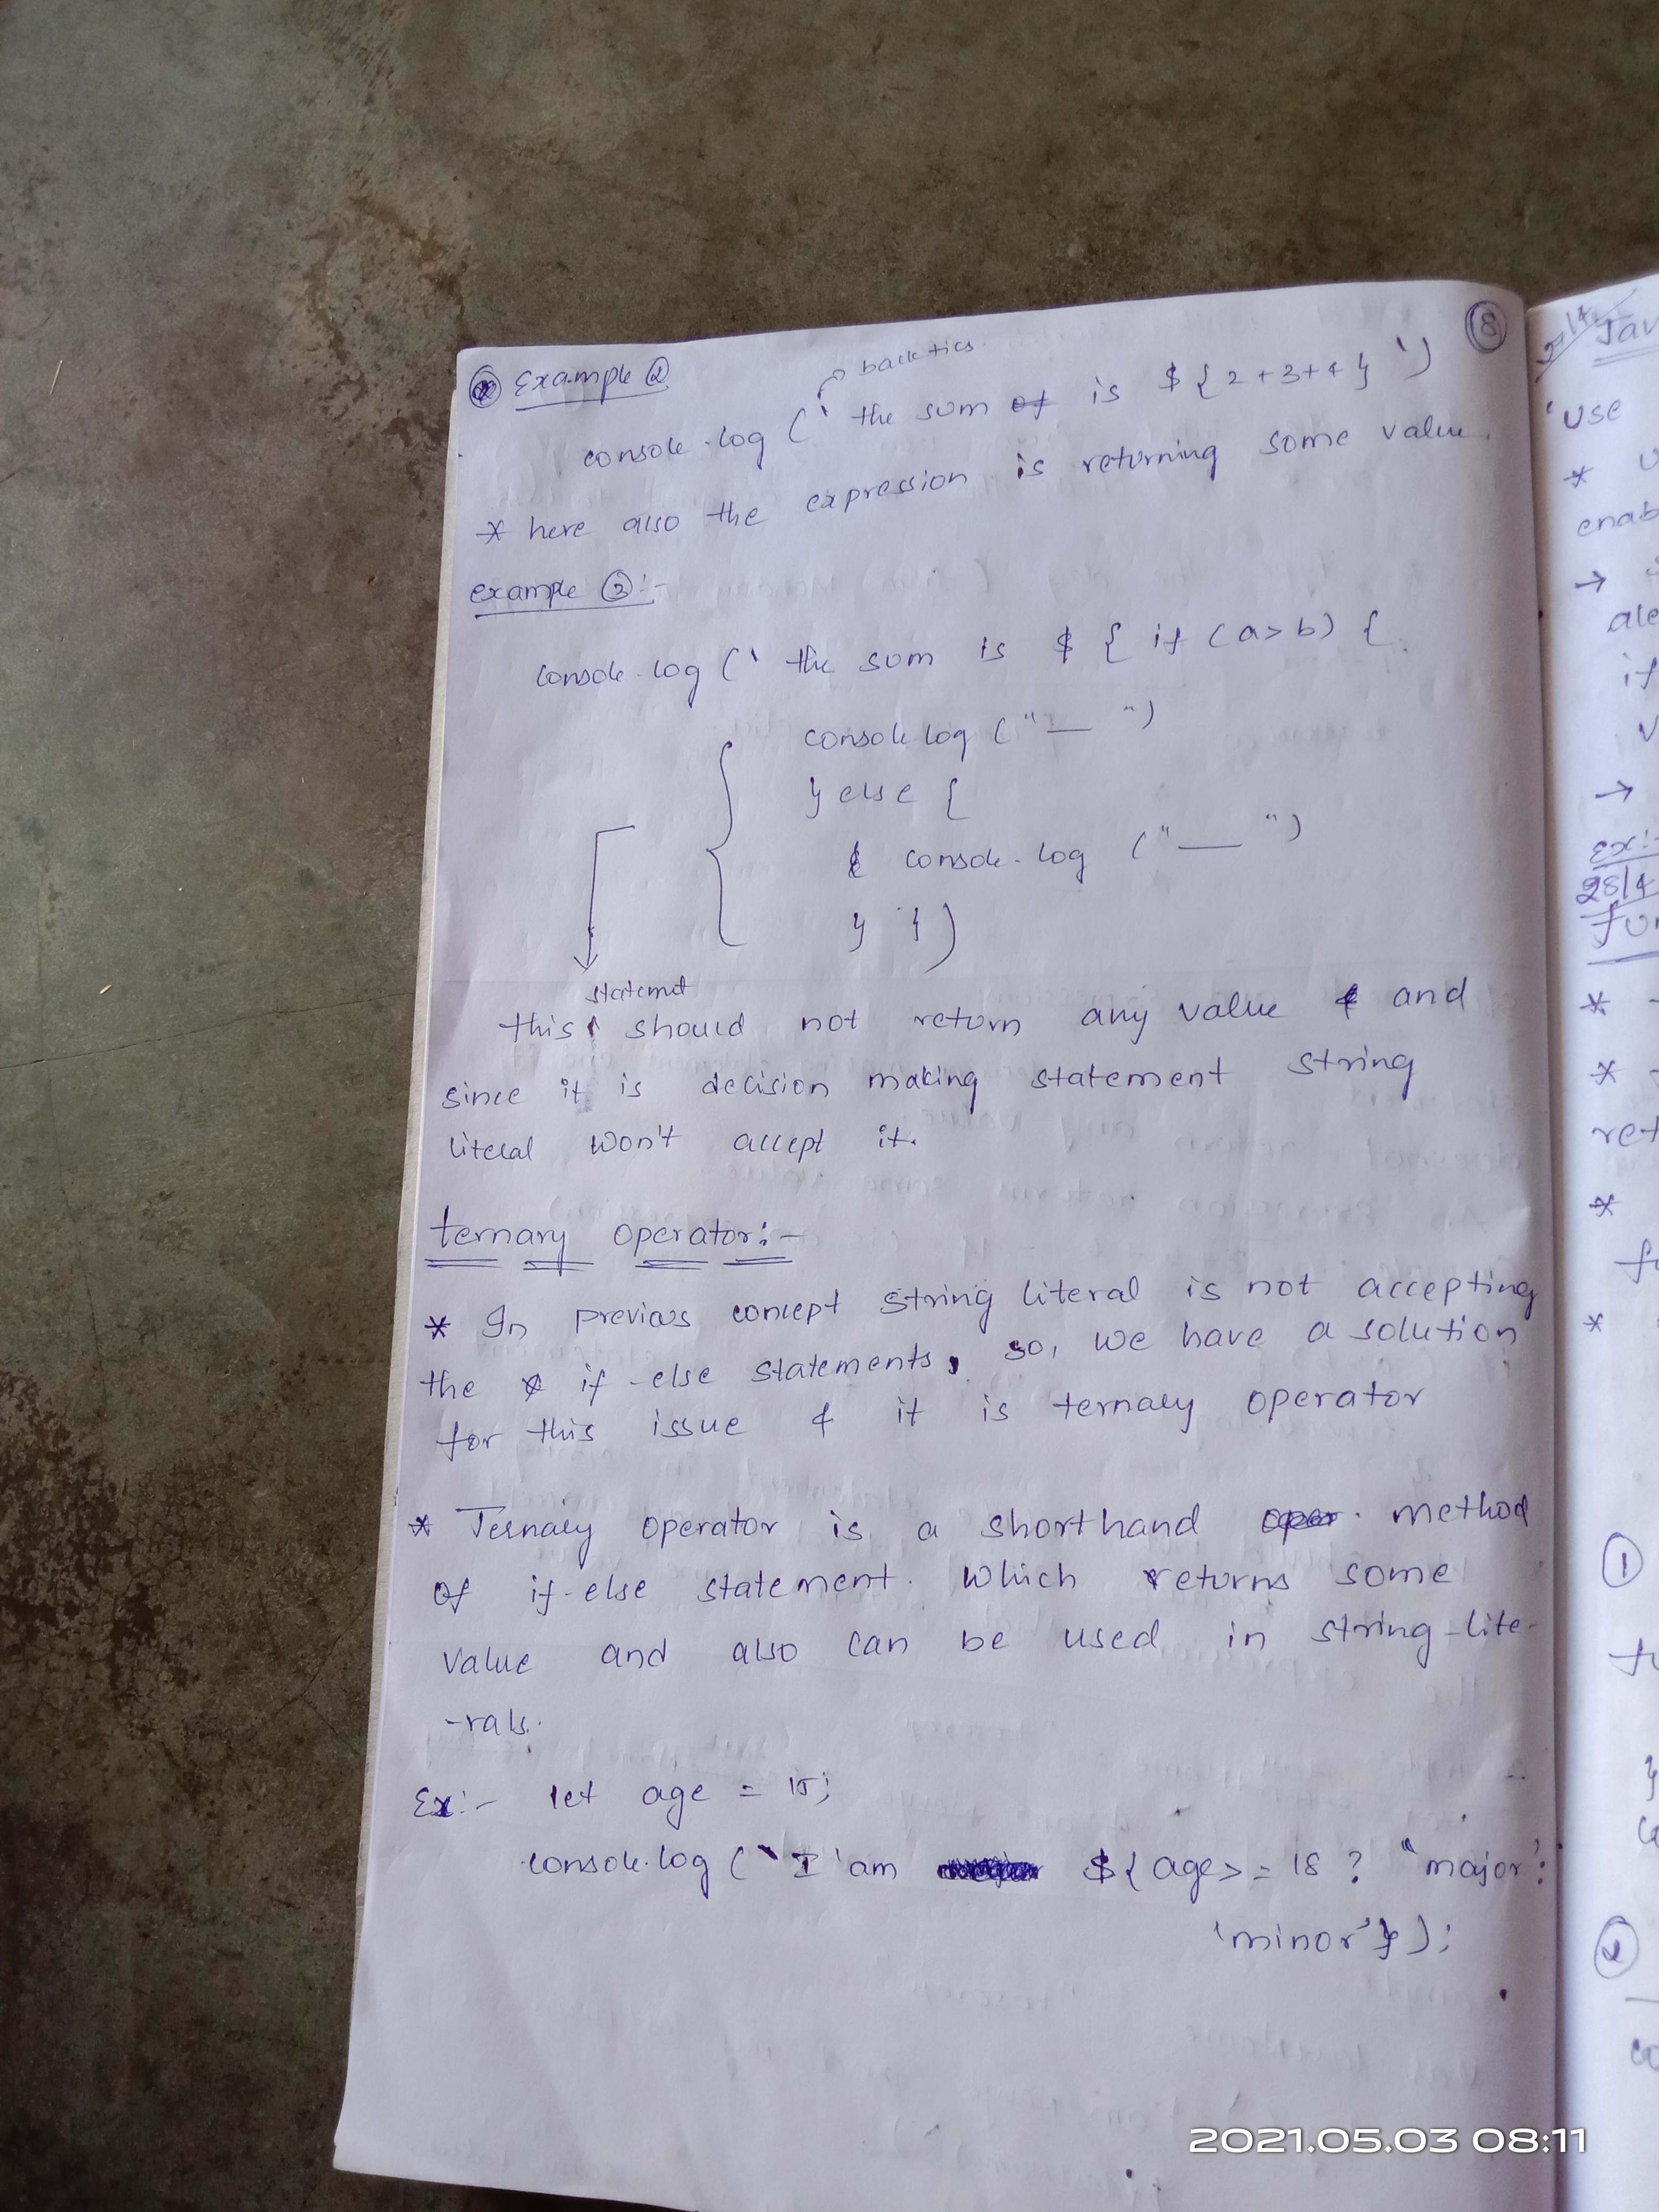 8
Example 2
back tics.
console.log (` the sum is ${2+3+4}`)
* here also the expression is returning some value.
example 3:-
console.log (` the sum is ${ if (a>b) {
console.log ("— ")
} else {
console.log ("— ")
} })
statemnt
this should not return any value and
since it is decision making statement string
literal won't accept it.
ternary operator:-
* In previous concept string literal is not accepting
the if-else statements, so, we have a solution
for this issue & it is ternary operator
* Ternary operator is a shorthand method
of if-else statement. Which returns some
value and also can be used in string-lite-
-rals.
Ex:- let age = 15;
console.log (` I'am ${age>=18 ? "major':
'minor'});
Jav
'use
*
enab
→
ale
if
→
Ex:-
28/4
fun
*
*
ret
*
*
1
2
2021.05.03 08:11